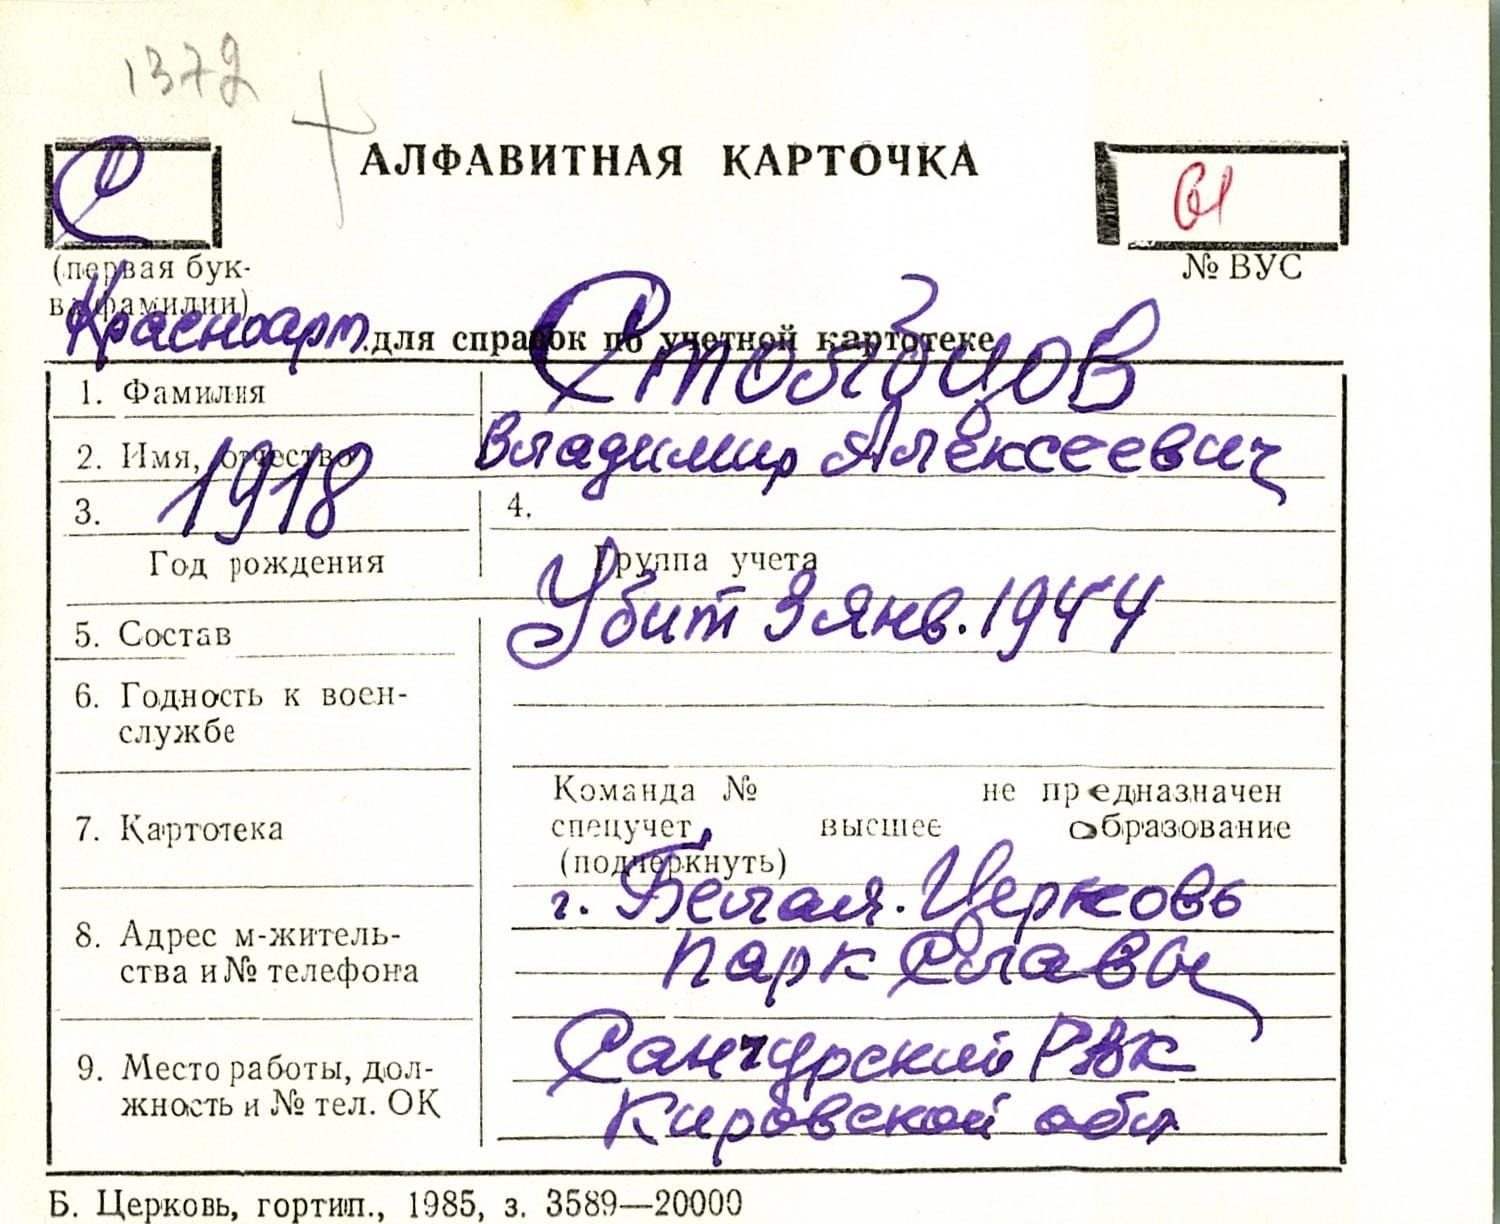 1372
АЛФАВИТНАЯ КАРТОЧКА
С
61
(первая бук-
ва фамилии)
№ ВУС
Красноарм.
для справок по учетной картотеке
1. Фамилия
Столбцов
2. Имя, отчество
Владимир Алексеевич
3. 1918
4.
Год рождения
Группа учета
5. Состав
Убит 3 янв. 1944
6. Годность к воен-
службе
7. Картотека
Команда № не предназначен
спецучет, высшее образование
(подчеркнуть)
8. Адрес м-житель-
ства и № телефона
г. Белая. Церковь
парк Славы
9. Место работы, дол-
жность и № тел. ОК
Санчурский РВК
Кировской обл
Б. Церковь, гортип., 1985, з. 3589—20000